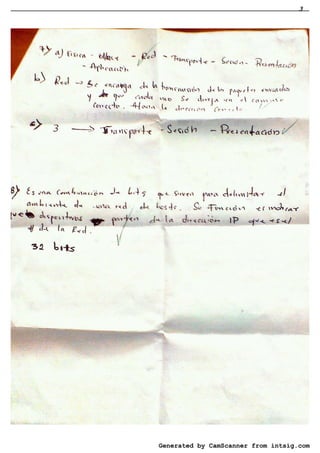 3
7) a) Física - Enlace - Red - Transporte - Sesión - Presentación
- Aplicación
b) Red -> Se encarga de la transmisión de los paquetes enviados
y de que cada uno se dirija en el camino
correcto. Hacia la dirección correcta
c) 3 -> Transporte - Sesión - Presentación
8) Es una combinación de bits que sirven para delimitar el
ambiente de una red de hosts. Su función es indicar
dispositivos parten de la dirección IP que es el
# de la Red.
32 bits
Generated by CamScanner from intsig.com